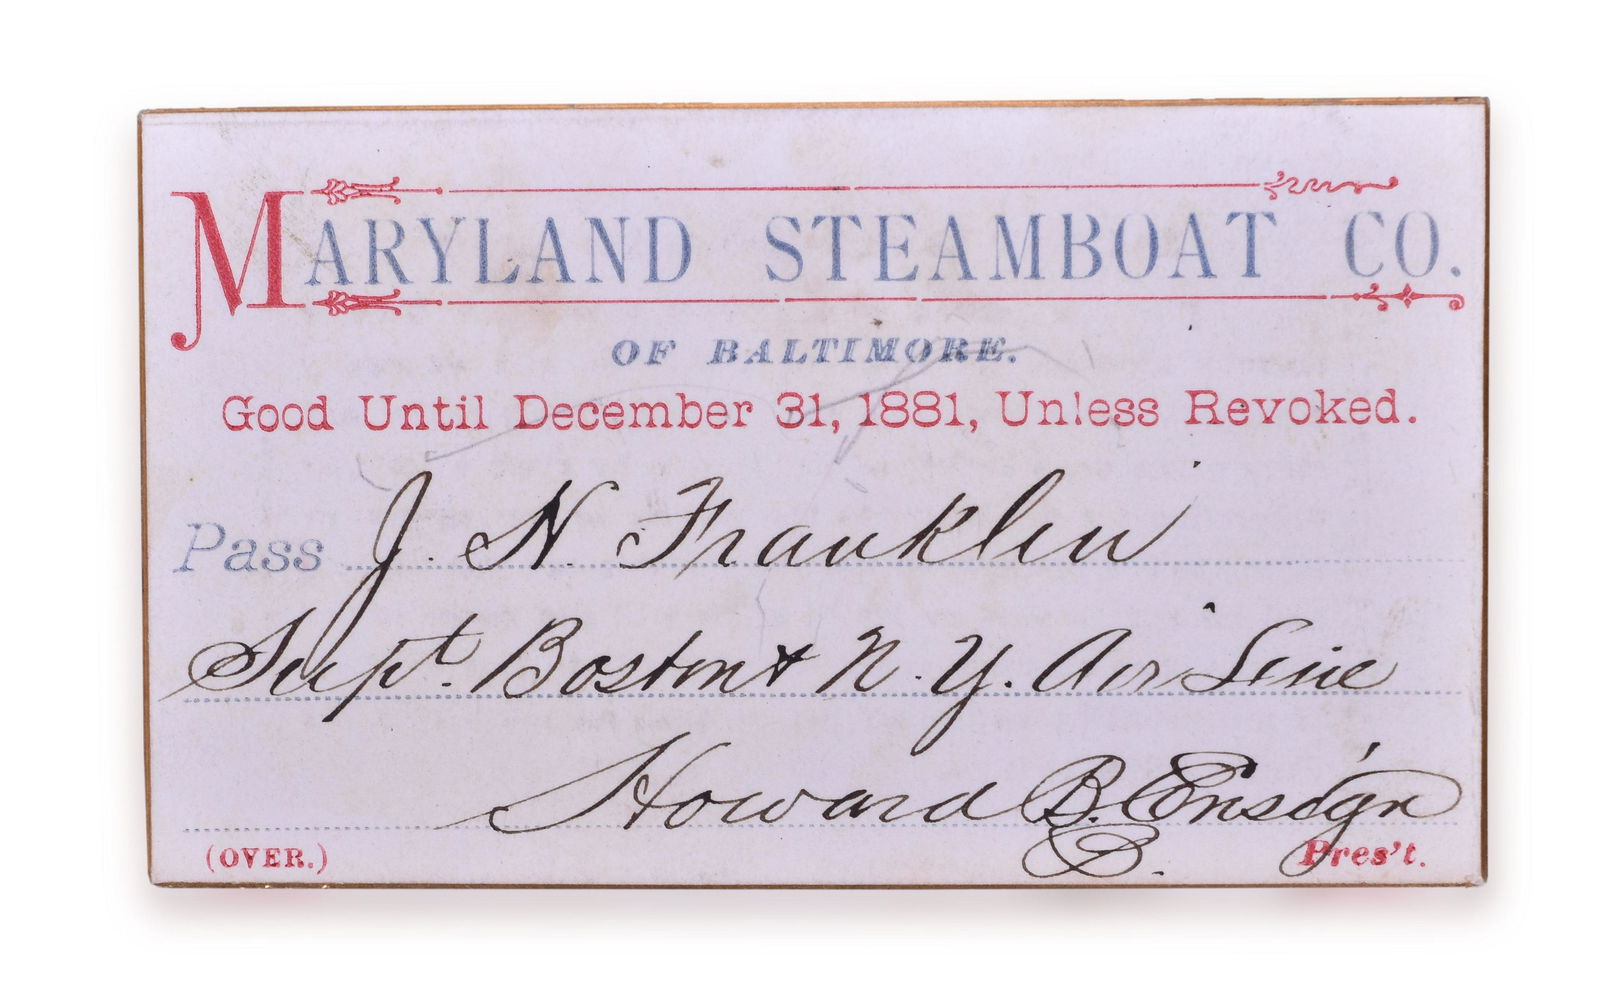 MARYLAND STEAMBOAT CO.
OF BALTIMORE.
Good Until December 31, 1881, Unless Revoked.
Pass J. N. Franklin
Supt. Boston & N. Y. Air Line
Howard B. Ensign
B.
(OVER.) Pres't.